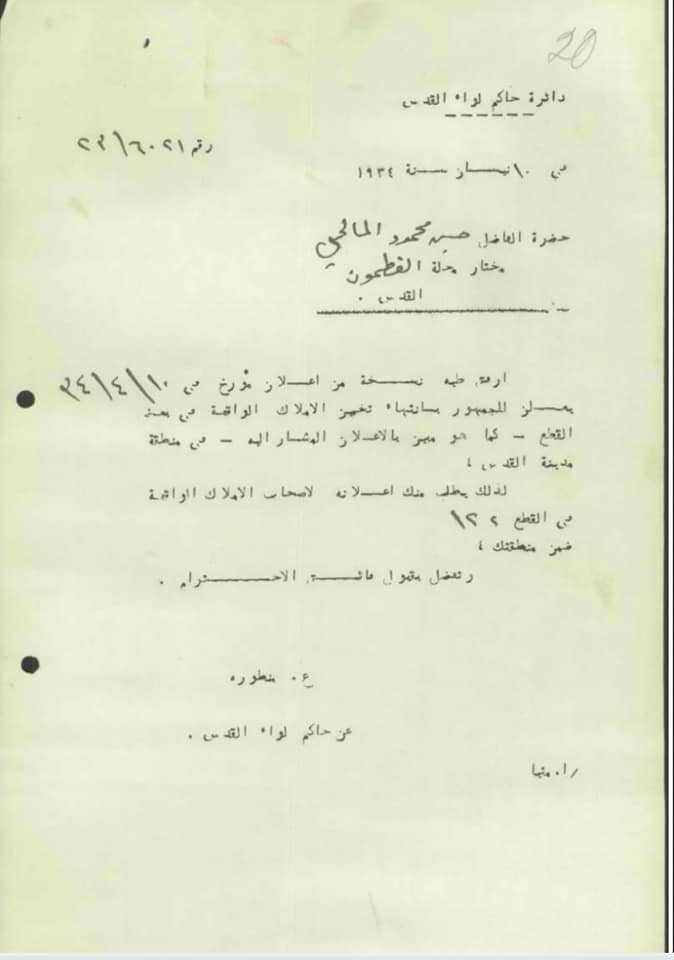 20
دائرة حاكم لواء القدس
رقم ٢٣/٦٠٢١
في ١٠ نيسان سنة ١٩٣٤
حضرة الفاضل حسن محمود المالحي
مختار محلة القطمون
القدس .
ارفق طيه نسخة من اعلان مؤرخ في ٣٤/٤/١٠
يعلن للجمهور بانتهاء تخمين الاملاك الواقعة في بعض
القطع - كما هو مبين بالاعلان المشار اليه - في منطقة
مدينة القدس ،
لذلك يطلب منك اعلانه لاصحاب الاملاك الواقعة
في القطع
ضمن منطقتك ،
وتفضل بقبول فائق الاحترام .
ع . منطوره
عن حاكم لواء القدس .